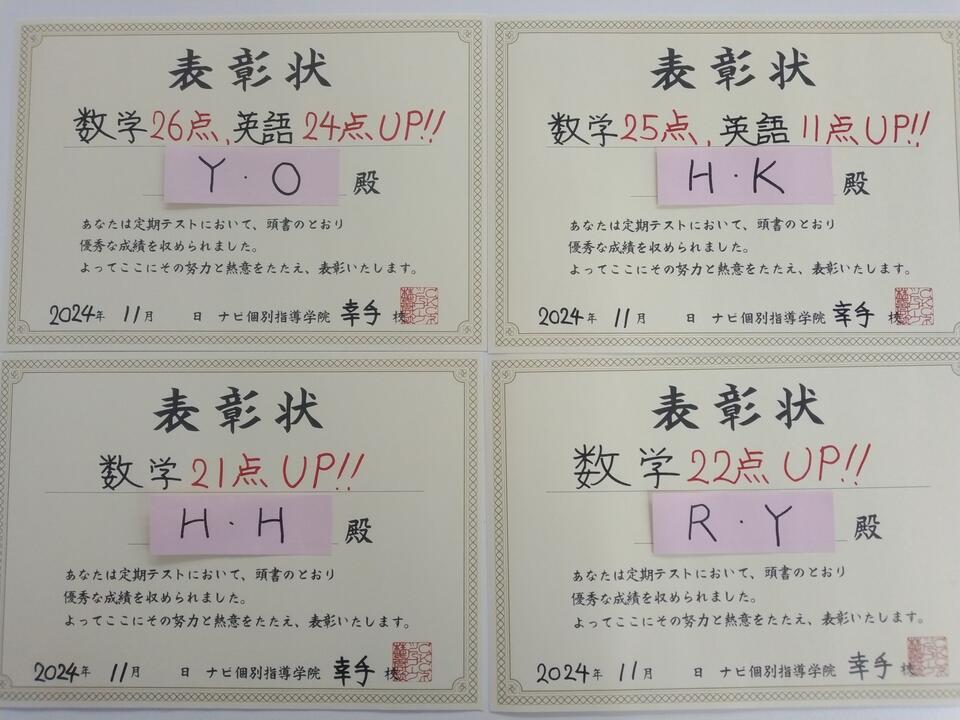 表彰状
数学26点,英語24点UP!!
Y・O 殿
あなたは定期テストにおいて、頭書のとおり
優秀な成績を収められました。
よってここにその努力と熱意をたたえ、表彰いたします。
2024年 11月 日 ナビ個別指導学院 幸手 校
表彰状
数学25点,英語11点UP!!
H・K 殿
あなたは定期テストにおいて、頭書のとおり
優秀な成績を収められました。
よってここにその努力と熱意をたたえ、表彰いたします。
2024年 11月 日 ナビ個別指導学院 幸手 校
表彰状
数学21点UP!!
H・H 殿
あなたは定期テストにおいて、頭書のとおり
優秀な成績を収められました。
よってここにその努力と熱意をたたえ、表彰いたします。
2024年 11月 日 ナビ個別指導学院 幸手 校
表彰状
数学22点UP!!
R・Y 殿
あなたは定期テストにおいて、頭書のとおり
優秀な成績を収められました。
よってここにその努力と熱意をたたえ、表彰いたします。
2024年 11月 日 ナビ個別指導学院 幸手 校